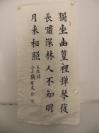 獨坐幽篁裡彈琴復
長嘯深林人不知明
月來相照